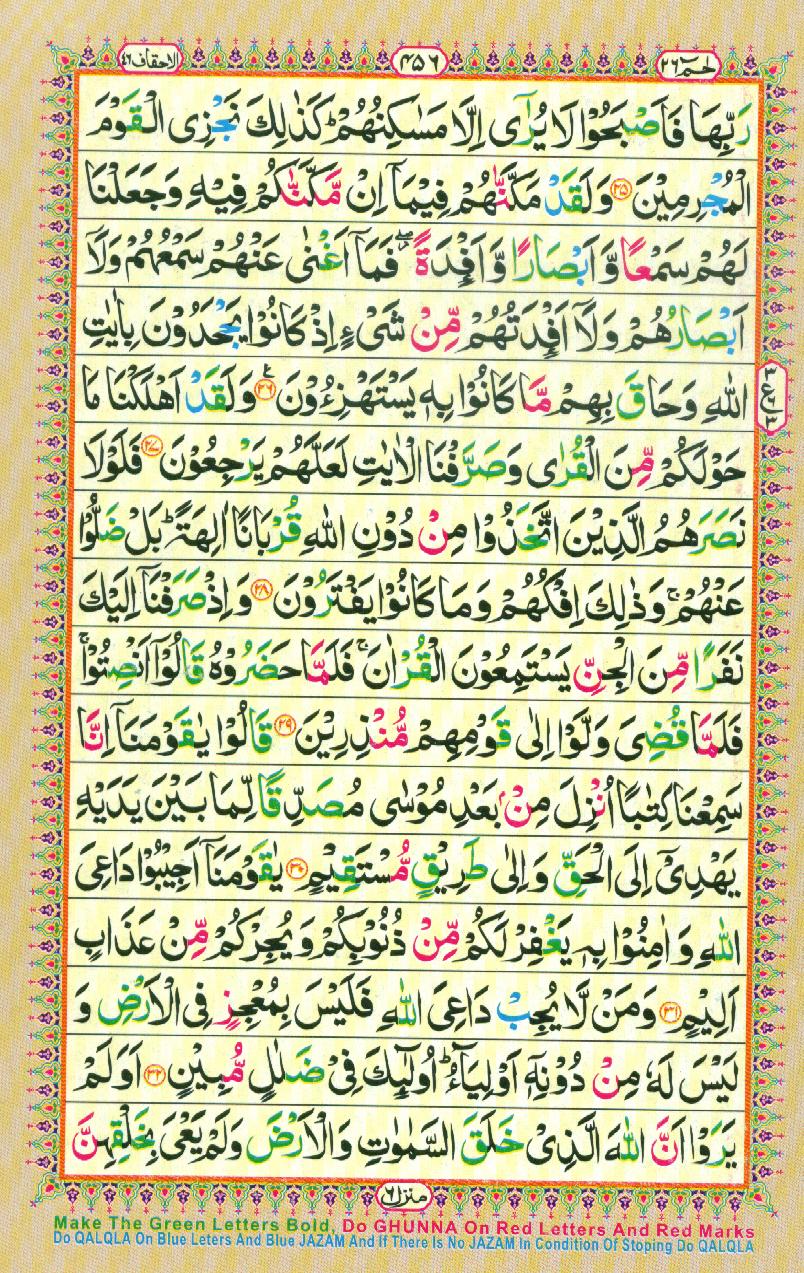 الاحقاف ٤٦
٤٥٦
حٰمٓ ٢٦
رَبِّهَا فَاَصْبَحُوْا لَا يُرٰٓى اِلَّا مَسٰكِنُهُمْ ؕ كَذٰلِكَ نَجْزِى الْقَوْمَ
الْمُجْرِمِيْنَ ﴿٢٥﴾ وَلَقَدْ مَكَّنّٰهُمْ فِيْمَاۤ اِنْ مَّكَّنّٰكُمْ فِيْهِ وَجَعَلْنَا
لَهُمْ سَمْعًا وَّاَبْصَارًا وَّاَفْـِٕدَةً ۖ فَمَاۤ اَغْنٰى عَنْهُمْ سَمْعُهُمْ وَلَاۤ
اَبْصَارُهُمْ وَلَاۤ اَفْـِٕدَتُهُمْ مِّنْ شَىْءٍ اِذْ كَانُوْا يَجْحَدُوْنَ بِاٰيٰتِ
اللّٰهِ وَحَاقَ بِهِمْ مَّا كَانُوْا بِهٖ يَسْتَهْزِءُوْنَ ﴿٢٦﴾ ع وَلَقَدْ اَهْلَكْنَا مَا
٣ ع ٣
حَوْلَكُمْ مِّنَ الْقُرٰى وَصَرَّفْنَا الْاٰيٰتِ لَعَلَّهُمْ يَرْجِعُوْنَ ﴿٢٧﴾ فَلَوْلَا
نَصَرَهُمُ الَّذِيْنَ اتَّخَذُوْا مِنْ دُوْنِ اللّٰهِ قُرْبَانًا اٰلِهَةً ؕ بَلْ ضَلُّوْا
عَنْهُمْ ۚ وَذٰلِكَ اِفْكُهُمْ وَمَا كَانُوْا يَفْتَرُوْنَ ﴿٢٨﴾ وَاِذْ صَرَفْنَاۤ اِلَيْكَ
نَفَرًا مِّنَ الْجِنِّ يَسْتَمِعُوْنَ الْقُرْاٰنَ ۚ فَلَمَّا حَضَرُوْهُ قَالُوْۤا اَنْصِتُوْا ۚ
فَلَمَّا قُضِىَ وَلَّوْا اِلٰى قَوْمِهِمْ مُّنْذِرِيْنَ ﴿٢٩﴾ قَالُوْا يٰقَوْمَنَاۤ اِنَّا
سَمِعْنَا كِتٰبًا اُنْزِلَ مِنْۢ بَعْدِ مُوْسٰى مُصَدِّقًا لِّمَا بَيْنَ يَدَيْهِ
يَهْدِىْۤ اِلَى الْحَقِّ وَاِلٰى طَرِيْقٍ مُّسْتَقِيْمٍ ﴿٣٠﴾ يٰقَوْمَنَاۤ اَجِيْبُوْا دَاعِىَ
اللّٰهِ وَاٰمِنُوْا بِهٖ يَغْفِرْ لَكُمْ مِّنْ ذُنُوْبِكُمْ وَيُجِرْكُمْ مِّنْ عَذَابٍ
اَلِيْمٍ ﴿٣١﴾ وَمَنْ لَّا يُجِبْ دَاعِىَ اللّٰهِ فَلَيْسَ بِمُعْجِزٍ فِى الْاَرْضِ وَ
لَيْسَ لَهٗ مِنْ دُوْنِهٖۤ اَوْلِيَآءُ ؕ اُولٰٓئِكَ فِىْ ضَلٰلٍ مُّبِيْنٍ ﴿٣٢﴾ اَوَلَمْ
يَرَوْا اَنَّ اللّٰهَ الَّذِىْ خَلَقَ السَّمٰوٰتِ وَالْاَرْضَ وَلَمْ يَعْىَ بِخَلْقِهِنَّ
منزل ٦
Make The Green Letters Bold, Do GHUNNA On Red Letters And Red Marks
Do QALQLA On Blue Leters And Blue JAZAM And If There Is No JAZAM In Condition Of Stoping Do QALQLA